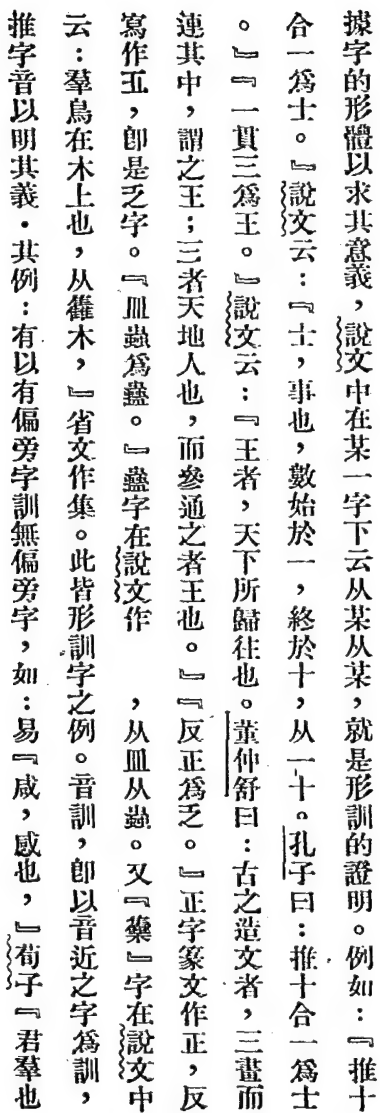 據字的形體以求其意義，說文中在某一字下云从某从某，就是形訓的證明。例如：『推十
合一爲士。』說文云：『士，事也，數始於一，終於十，从一十。孔子曰：推十合一爲士
。』『一貫三爲王。』說文云：『王者，天下所歸往也。董仲舒曰：古之造文者，三畫而
連其中，謂之王；三者天地人也，而參通之者王也。』『反正爲乏。』正字篆文作正，反
寫作𤴓，卽是乏字。『皿蟲爲蠱。』蠱字在說文作　　，从皿从蟲。又『雧』字在說文中
云：羣鳥在木上也，从雥木，』省文作集。此皆形訓字之例。音訓，卽以音近之字爲訓，
推字音以明其義．其例：有以有偏旁字訓無偏旁字，如：易『咸，感也，』荀子『君羣也